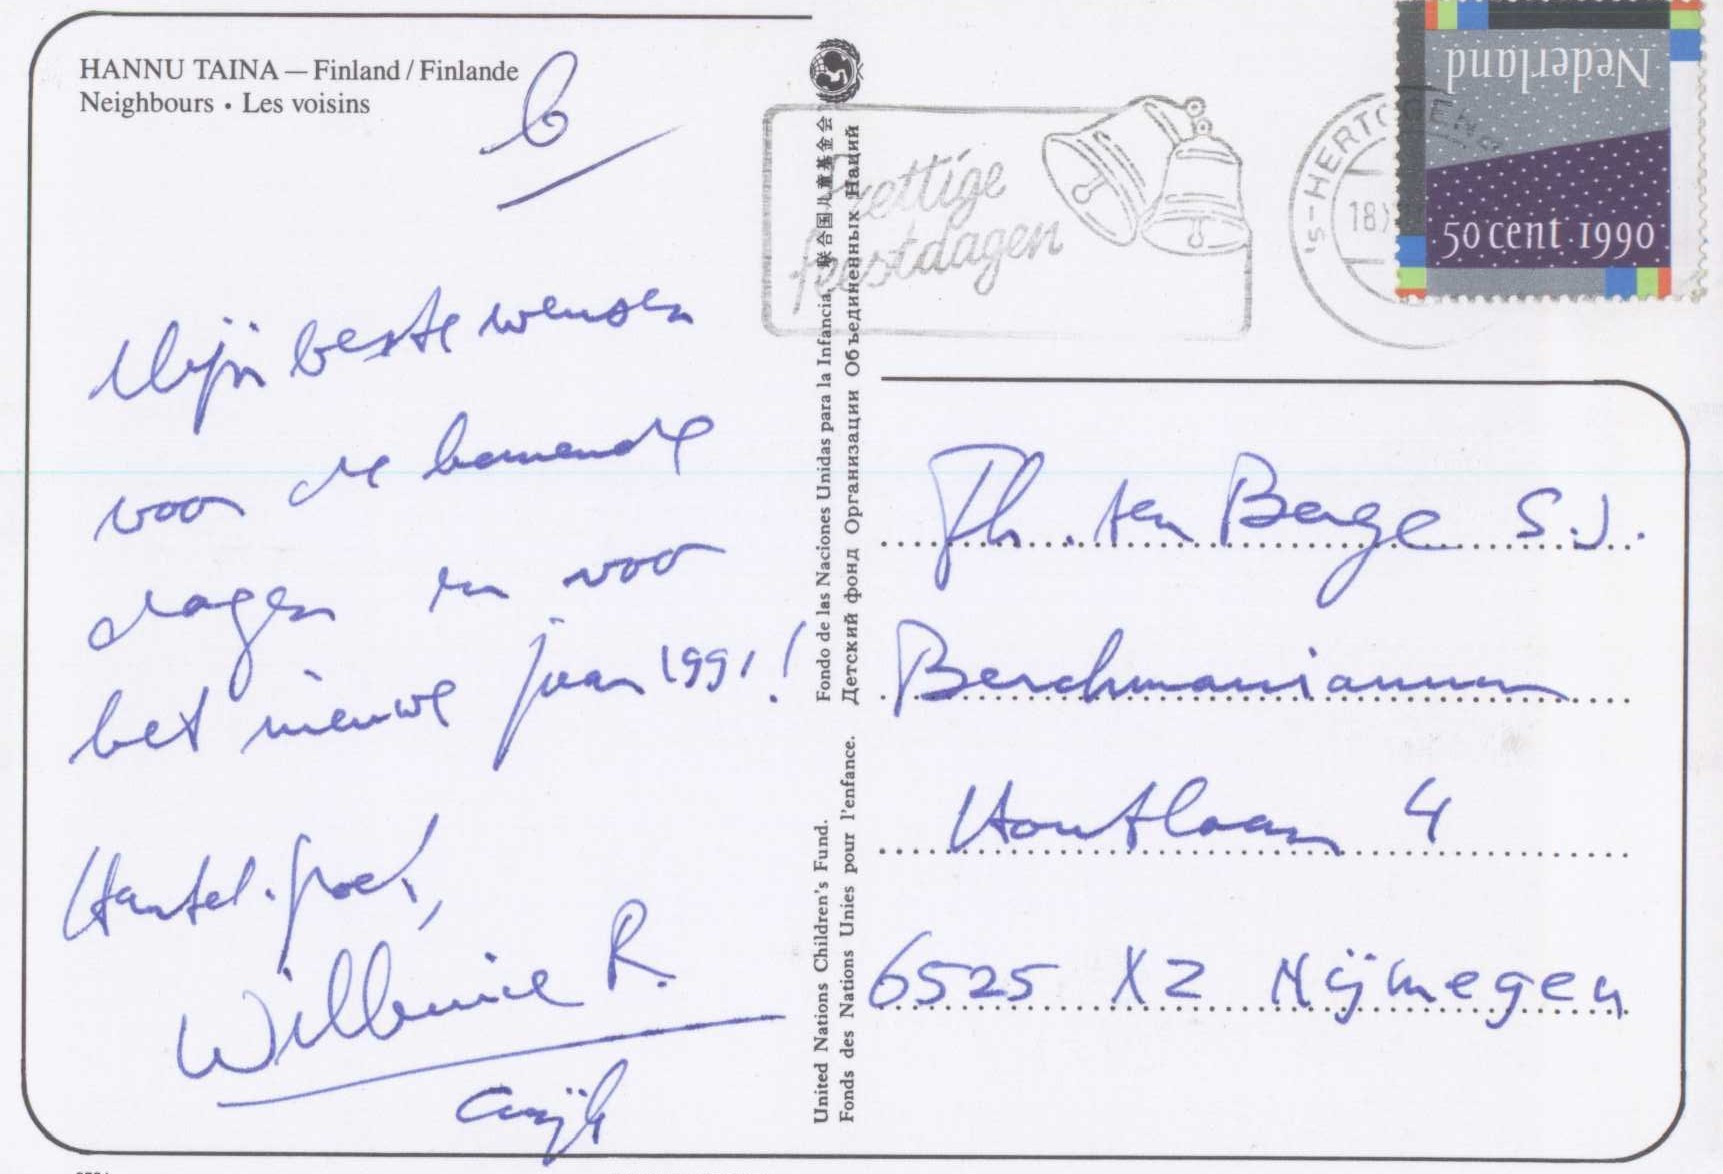 HANNU TAINA — Finland / Finlande
Neighbours • Les voisins
6
Mijn beste wensen
voor de komende
dagen en voor
het nieuwe jaar 1991!
Hartel. groet,
Willemine R.
Cuijk
United Nations Children's Fund. Fondo de las Naciones Unidas para la Infancia. 联合国儿童基金会
Fonds des Nations Unies pour l'enfance. Детский фонд Организации Объединенных Наций
Prettige
feestdagen
'S-HERTOGENB
18 X
Nederland
50 cent 1990
Th. ten Berge S.J.
Berchmanianum
Houtlaan 4
6525 XZ Nijmegen